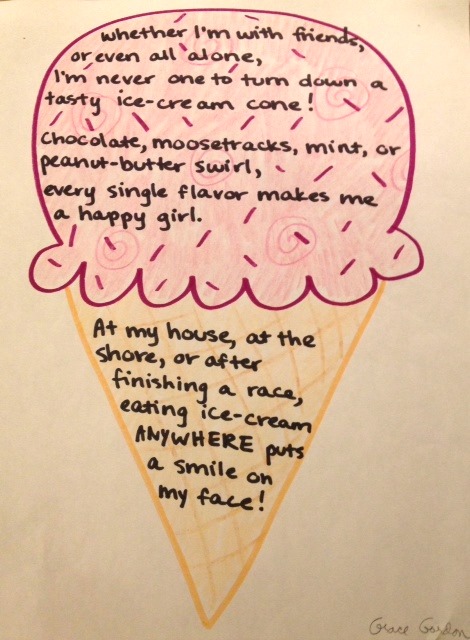 Whether I'm with friends,
or even all alone,
I'm never one to turn down a
tasty ice-cream cone!
Chocolate, moosetracks, mint, or
peanut-butter swirl,
every single flavor makes me
a happy girl.
At my house, at the
shore, or after
finishing a race,
eating ice-cream
ANYWHERE puts
a smile on
my face!
Grace Gordon